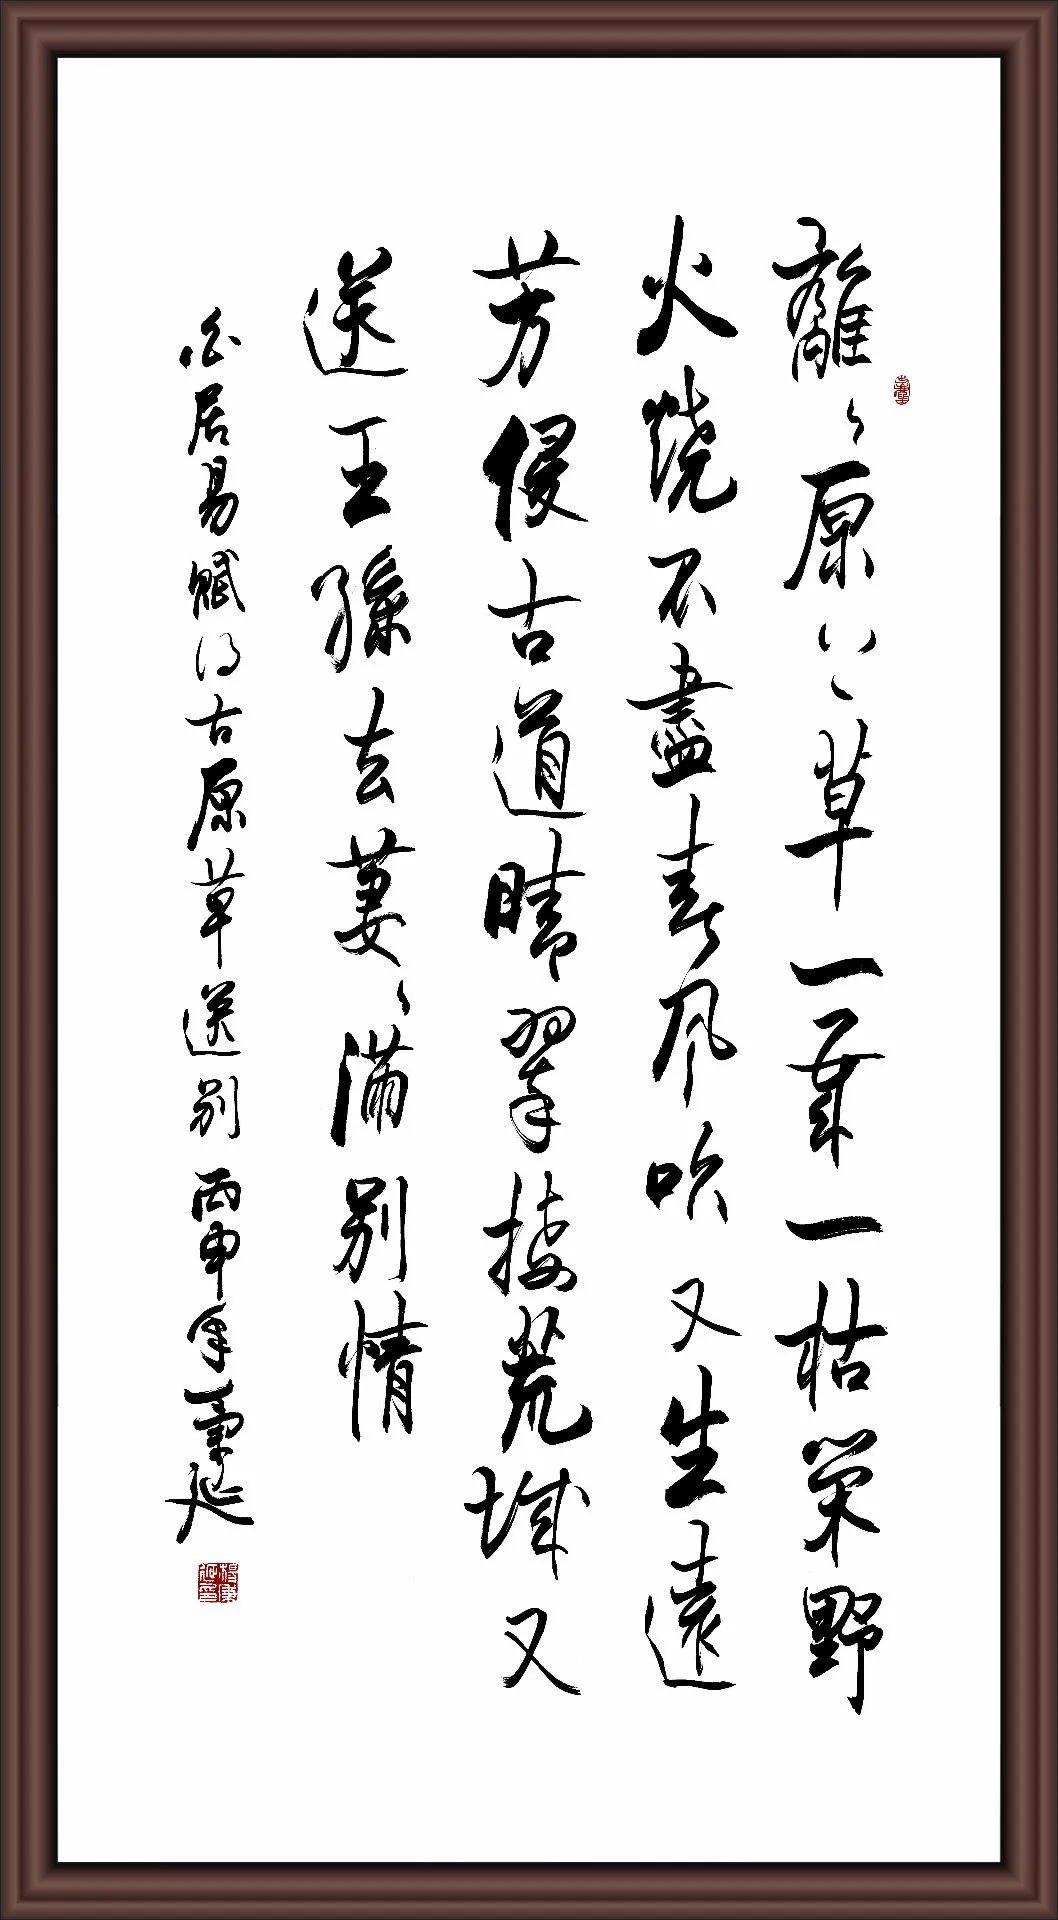 離〻原上草一歲一枯榮野
火燒不盡春風吹又生遠
芳侵古道晴翠接荒城又
送王孫去萋〻滿別情
白居易賦得古原草送別 丙申年